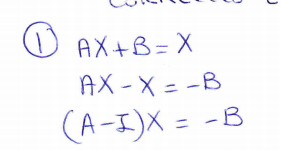 ① AX+B=X
AX-X=-B
(A-I)X = -B